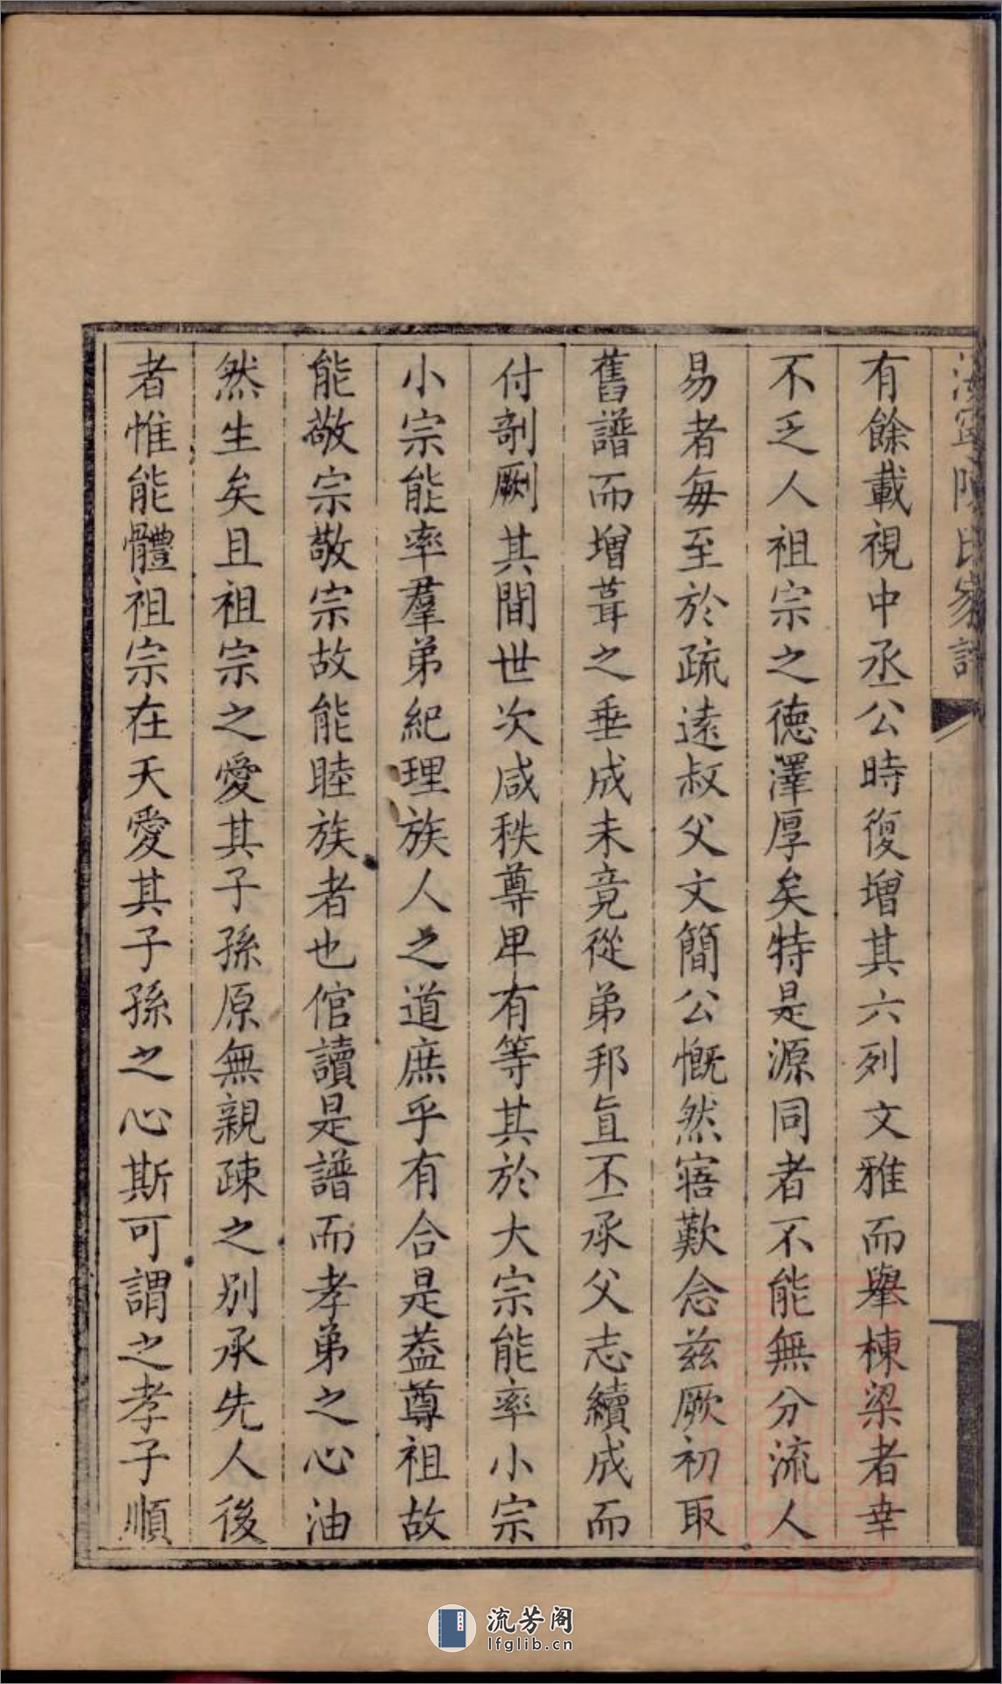 汝寧陳氏家譜
有餘載視中丞公時復增其六列文雅而舉棟梁者幸
不乏人祖宗之德澤厚矣特是源同者不能無分流人
易者每至於疏遠叔父文簡公慨然寤歎念兹厥初取
舊譜而增葺之垂成未竟從弟邦直丕承父志續成而
付剞劂其間世次咸秩尊卑有等其於大宗能率小宗
小宗能率羣弟紀理族人之道庶乎有合是葢尊祖故
能敬宗敬宗故能睦族者也倌讀是譜而孝弟之心油
然生矣且祖宗之愛其子孫原無親疎之别承先人後
者惟能體祖宗在天愛其子孫之心斯可謂之孝子順
流芳阁
lfglib.cn